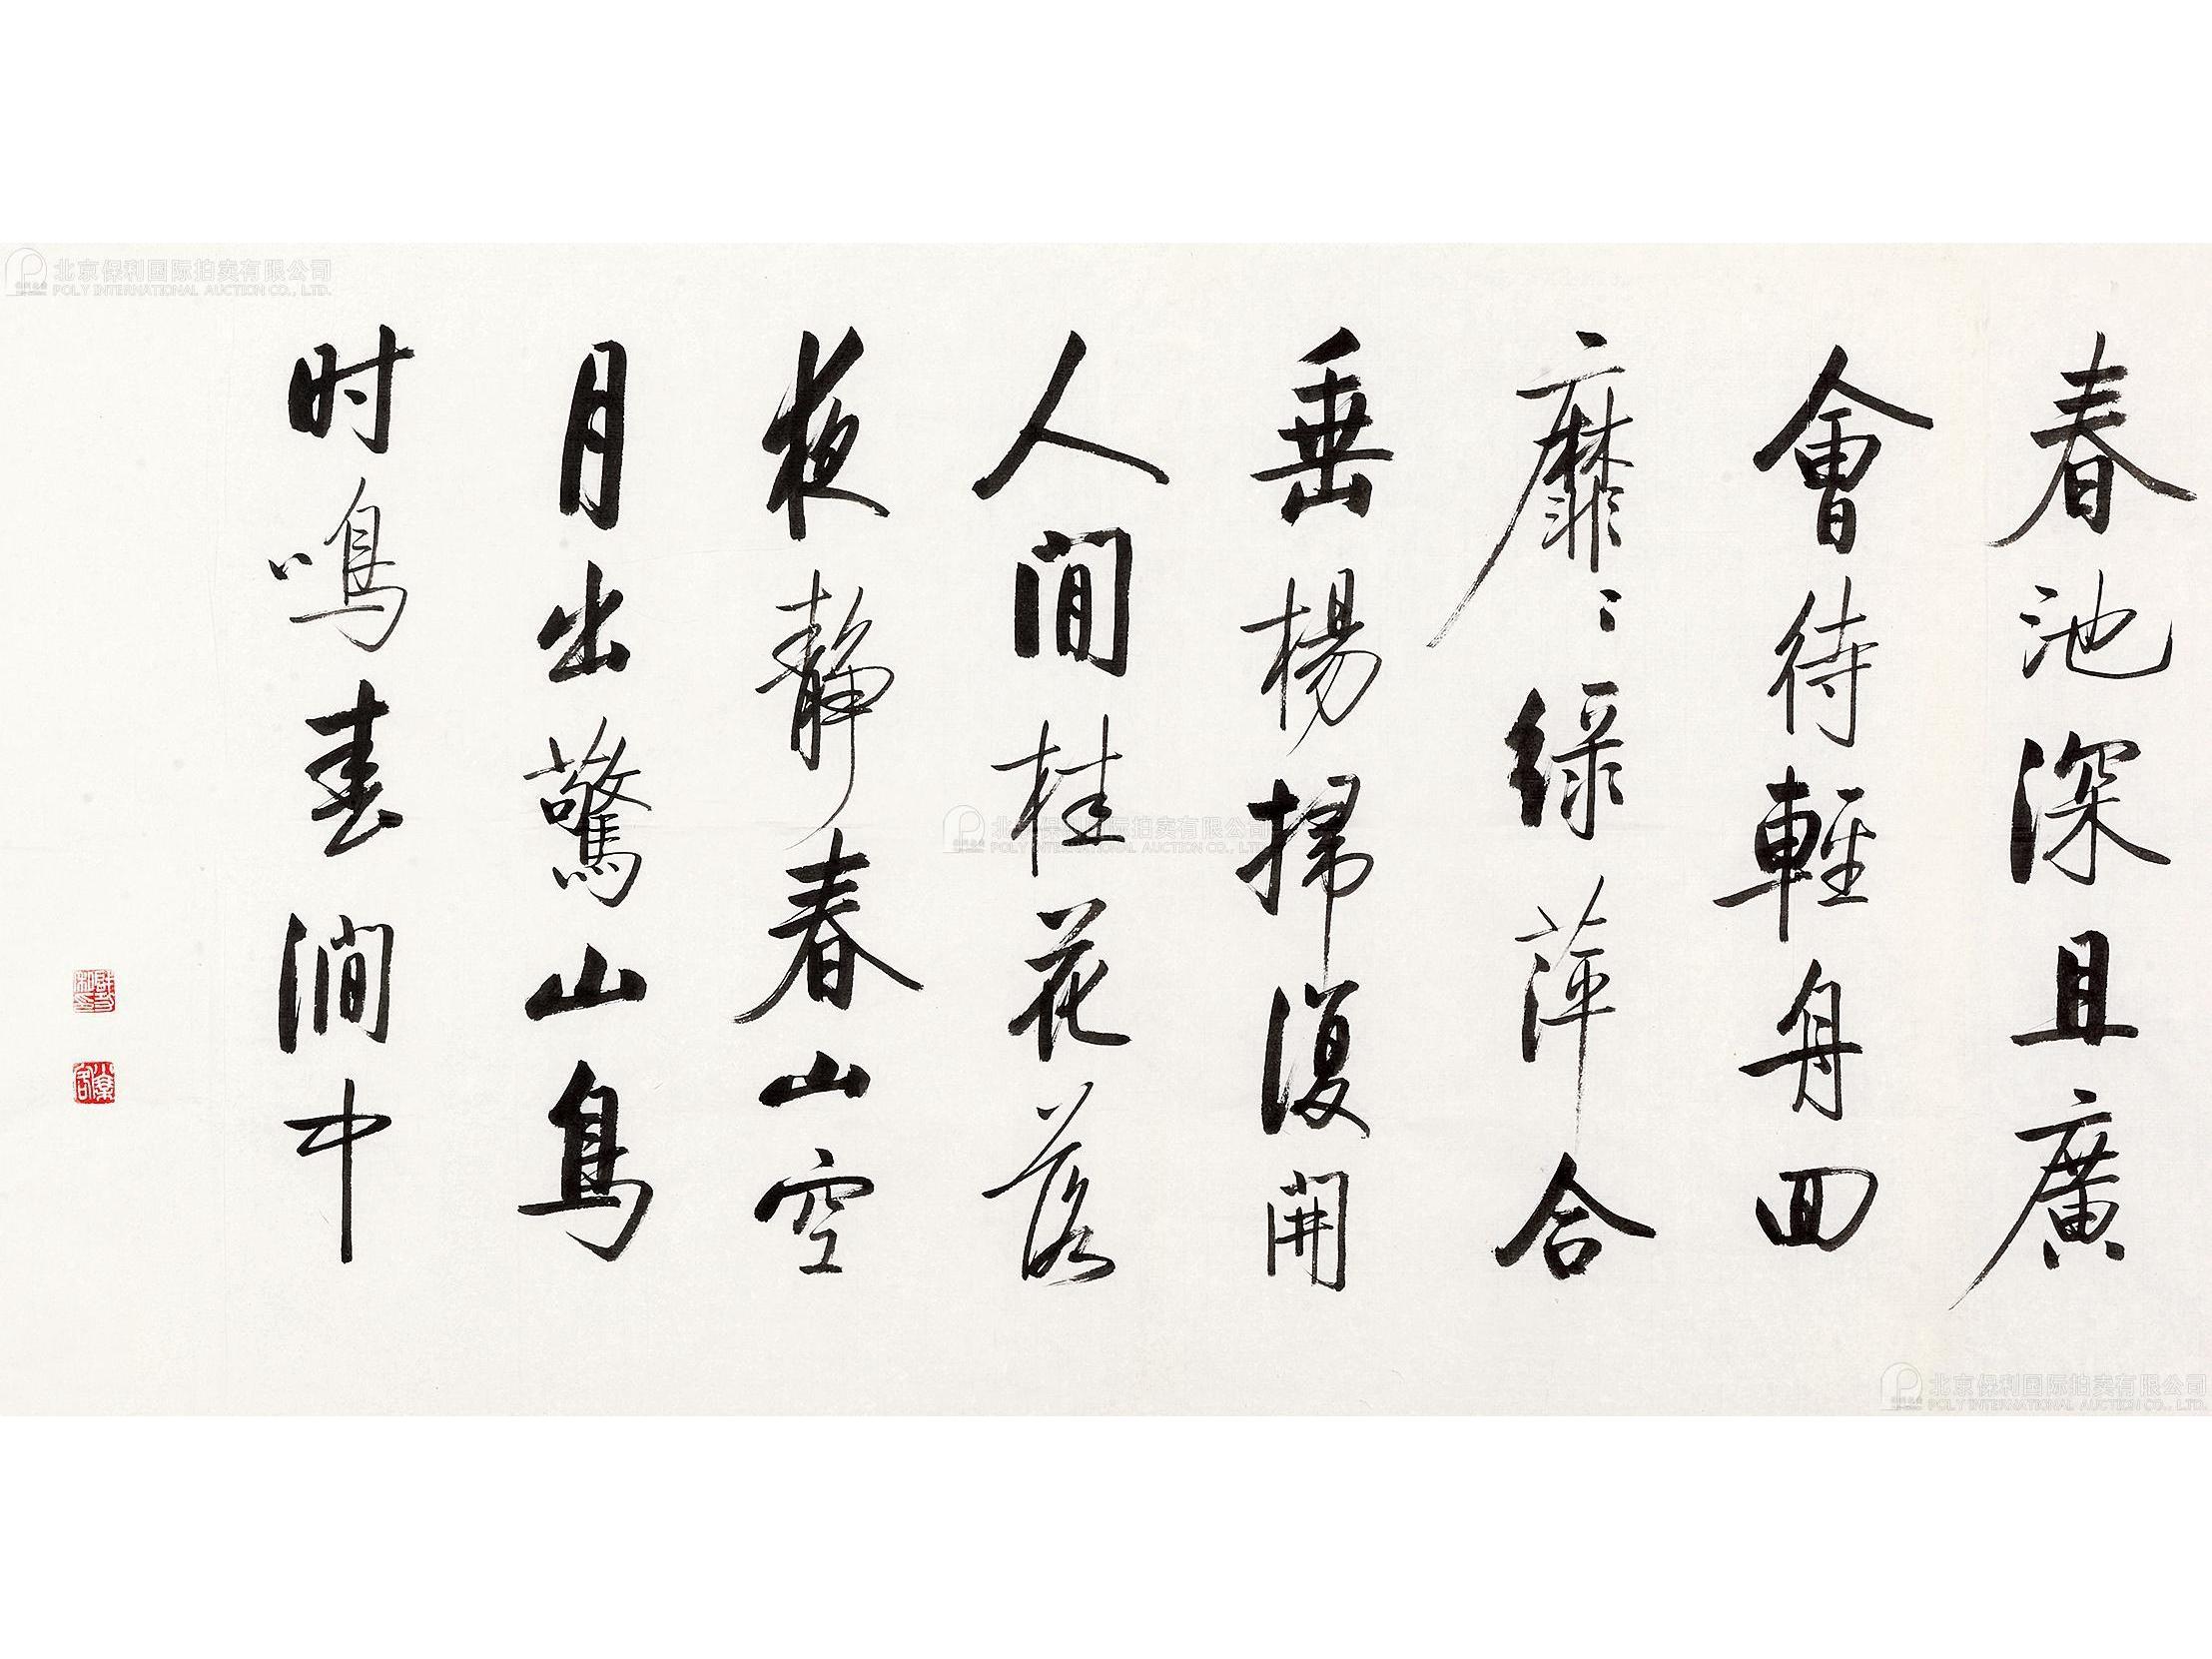 春池深且廣
會待輕舟回
靡〻綠萍合
垂楊掃復開
人閒桂花落
夜静春山空
月出驚山鳥
时鳴春澗中
北京保利国际拍卖有限公司
POLY INTERNATIONAL AUCTION CO., LTD.
北京保利国际拍卖有限公司
POLY INTERNATIONAL AUCTION CO., LTD.
北京保利国际拍卖有限公司
POLY INTERNATIONAL AUCTION CO., LTD.